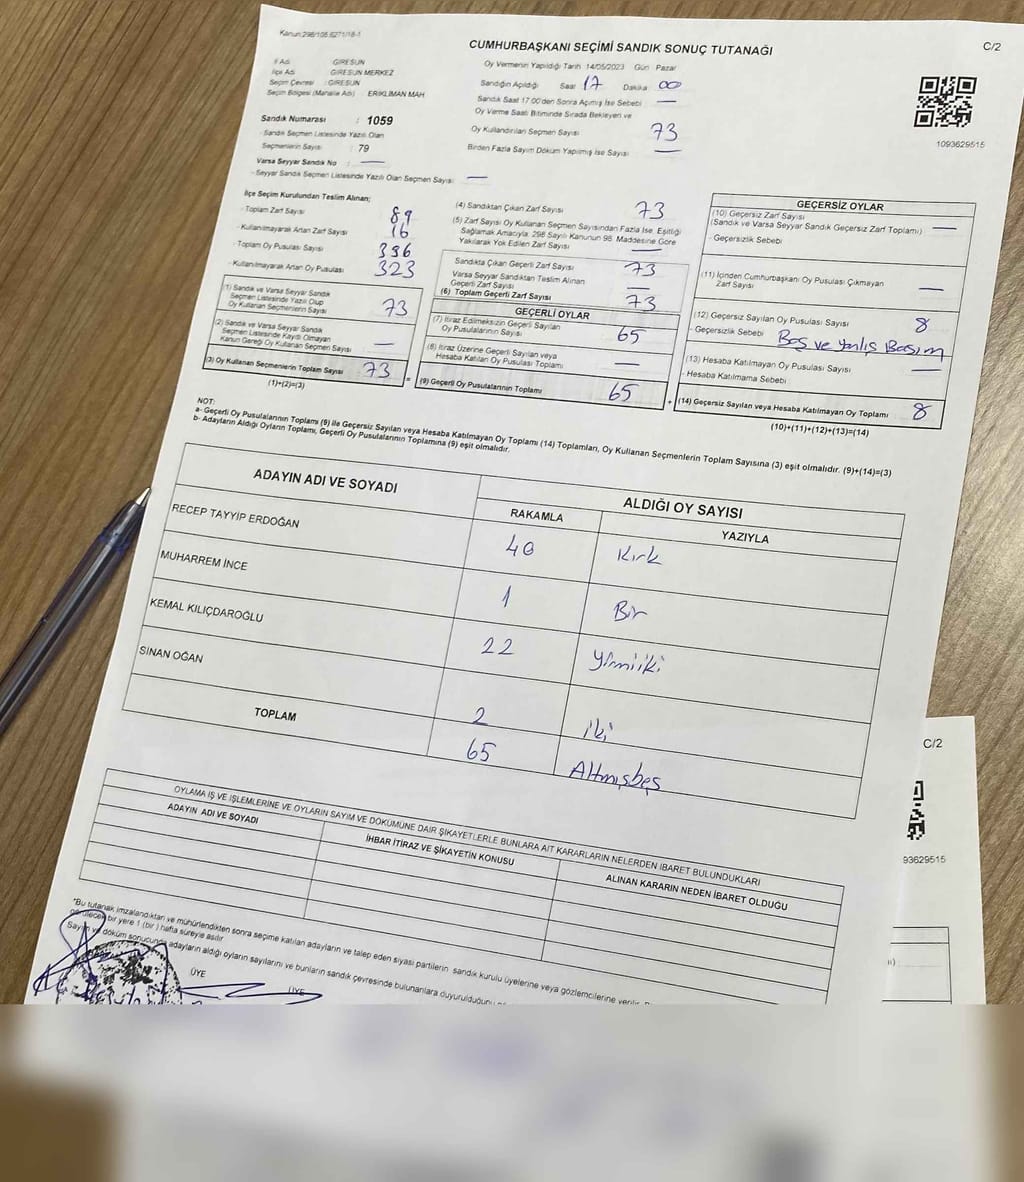 Kanun:298/105 6271/18-1
CUMHURBAŞKANI SEÇİMİ SANDIK SONUÇ TUTANAĞI
C/2
İl Adı : GİRESUN
İlçe Adı GİRESUN MERKEZ
Seçim Çevresi : GİRESUN
Seçim Bölgesi (Mahalle Adı) : ERİKLİMAN MAH
Sandık Numarası : 1059
- Sandık Seçmen Listesinde Yazılı Olan
Seçmenlerin Sayısı : 79
Varsa Seyyar Sandık No : —
- Seyyar Sandık Seçmen Listesinde Yazılı Olan Seçmen Sayısı —
Oy Vermenin Yapıldığı Tarih :14/05/2023 Gün : Pazar
Sandığın Açıldığı Saat 17 Dakika 00
Sandık Saat 17:00'den Sonra Açılmış İse Sebebi —
Oy Verme Saati Bitiminde Sırada Bekleyen ve
Oy Kullandırılan Seçmen Sayısı 73
Birden Fazla Sayım Döküm Yapılmış İse Sayısı —
1093629515
İlçe Seçim Kurulundan Teslim Alınan;
- Toplam Zarf Sayısı 89
- Kullanılmayarak Artan Zarf Sayısı 16
- Toplam Oy Pusulası Sayısı 396
- Kullanılmayarak Artan Oy Pusulası 323
(1) Sandık ve Varsa Seyyar Sandık
Seçmen Listesinde Yazılı Olup
Oy Kullanan Seçmenlerin Sayısı 73
(2) Sandık ve Varsa Seyyar Sandık
Seçmen Listesinde Kayıtlı Olmayan
Kanun Gereği Oy Kullanan Seçmen Sayısı —
(3) Oy Kullanan Seçmenlerin Toplam Sayısı 73
(1)+(2)=(3)
(4) Sandıktan Çıkan Zarf Sayısı 73
(5) Zarf Sayısı Oy Kullanan Seçmen Sayısından Fazla İse, Eşitliği
Sağlamak Amacıyla; 298 Sayılı Kanunun 98. Maddesine Göre
Yakılarak Yok Edilen Zarf Sayısı —
Sandıkta Çıkan Geçerli Zarf Sayısı 73
Varsa Seyyar Sandıktan Teslim Alınan
Geçerli Zarf Sayısı —
(6) Toplam Geçerli Zarf Sayısı 73
GEÇERLİ OYLAR
(7) İtiraz Edilmeksizin Geçerli Sayılan
Oy Pusulasının Sayısı 65
(8) İtiraz Üzerine Geçerli Sayılan veya
Hesaba Katılan Oy Pusulası Toplamı —
= (9) Geçerli Oy Pusulalarının Toplamı 65
GEÇERSİZ OYLAR
(10) Geçersiz Zarf Sayısı
(Sandık ve Varsa Seyyar Sandık Geçersiz Zarf Toplamı) —
- Geçersizlik Sebebi :
(11) İçinden Cumhurbaşkanı Oy Pusulası Çıkmayan
Zarf Sayısı —
(12) Geçersiz Sayılan Oy Pusulası Sayısı 8
- Geçersizlik Sebebi : Boş ve Yanlış Basım
(13) Hesaba Katılmayan Oy Pusulası Sayısı —
- Hesaba Katılmama Sebebi :
+ (14) Geçersiz Sayılan veya Hesaba Katılmayan Oy Toplamı 8
(10)+(11)+(12)+(13)=(14)
NOT:
a- Geçerli Oy Pusulalarının Toplamı (9) ile Geçersiz Sayılan veya Hesaba Katılmayan Oy Toplamı (14) Toplamları, Oy Kullanan Seçmenlerin Toplam Sayısına (3) eşit olmalıdır. (9)+(14)=(3)
b- Adayların Aldığı Oyların Toplamı, Geçerli Oy Pusulalarının Toplamına (9) eşit olmalıdır.
ADAYIN ADI VE SOYADI
ALDIĞI OY SAYISI
RAKAMLA YAZIYLA
RECEP TAYYİP ERDOĞAN 40 Kırk
MUHARREM İNCE 1 Bir
KEMAL KILIÇDAROĞLU 22 Yirmiiki
SİNAN OĞAN 2 İki
TOPLAM 65 Altmışbeş
OYLAMA İŞ VE İŞLEMLERİNE VE OYLARIN SAYIM VE DÖKÜMÜNE DAİR ŞİKAYETLERLE BUNLARA AİT KARARLARIN NELERDEN İBARET BULUNDUKLARI
ADAYIN ADI VE SOYADI İHBAR İTİRAZ VE ŞİKAYETİN KONUSU ALINAN KARARIN NEDEN İBARET OLDUĞU
*Bu tutanak imzalandıktan ve mühürlendikten sonra seçime katılan adayların ve talep eden siyasi partilerin sandık kurulu üyelerine veya gözlemcilerine verilir.
görülecek bir yere 1 (bir) hafta süreyle asılır.
Sayım ve döküm sonucunda adayların aldığı oyların sayılarını ve bunların sandık çevresinde bulunanlara duyurulduğunu
ÜYE
ÜYE
C/2
93629515